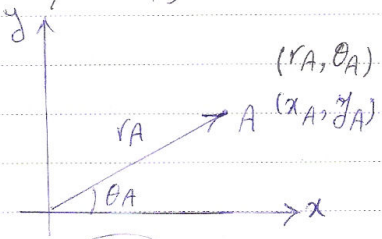 y
(rA, θA)
rA
A (xA, yA)
θA
x